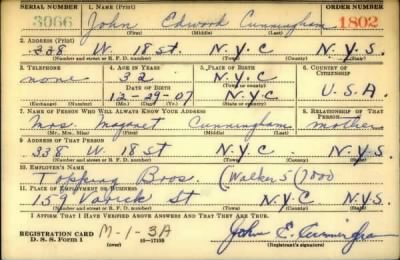 SERIAL NUMBER 1. NAME (Print) ORDER NUMBER
3066 John Edword Cunningham 1802
(First) (Middle) (Last)
2. ADDRESS (Print)
338 W. 18 St. N.Y.C N.Y.S.
(Number and street or R. F. D. number) (Town) (County) (State)
3. TELEPHONE 4. AGE IN YEARS 5. PLACE OF BIRTH 6. COUNTRY OF CITIZENSHIP
none 32 N.Y.C
DATE OF BIRTH (Town or county)
12-29-07 N.Y.C U.S.A.
(Exchange) (Number) (Mo.) (Day) (Yr.) (State or country)
7. NAME OF PERSON WHO WILL ALWAYS KNOW YOUR ADDRESS 8. RELATIONSHIP OF THAT PERSON
Mrs Magaret Cunningham mother
(Mr., Mrs., Miss) (First) (Middle) (Last)
9. ADDRESS OF THAT PERSON
338 W. 18 St N.Y.C N.Y.S.
(Number and street or R. F. D. number) (Town) (County) (State)
10. EMPLOYER'S NAME
Topping Bros. (Walker 5-7000
11. PLACE OF EMPLOYMENT OR BUSINESS
159 Varick St N.Y.C N.Y.S.
(Number and street or R. F. D. number) (Town) (County) (State)
I AFFIRM THAT I HAVE VERIFIED ABOVE ANSWERS AND THAT THEY ARE TRUE.
REGISTRATION CARD M-1-3A John E. Cunningham
D. S. S. Form 1 16-17105 (Registrant's signature)